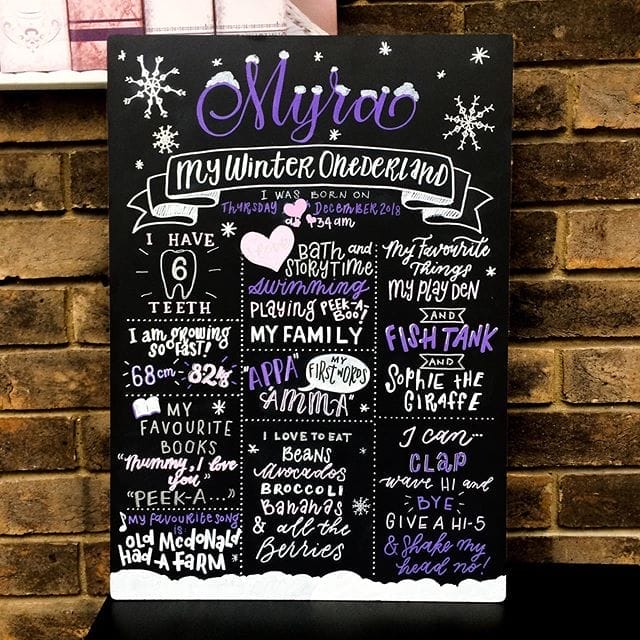 Myra
My Winter Onederland
I WAS BORN ON
Thursday December 2018
34am
I HAVE
6
TEETH
I am growing
so fast!
68cm - 82
MY
FAVOURITE
BOOKS
"Mummy, I love
you"
"PEEK-A...."
My favourite song
is
Old McDonald
Had A Farm
love
Bath and
Storytime
Swimming
Playing PEEK-A-
BOO!
MY FAMILY
"APPA"
MY
FIRST WORDS
AMMA"
I LOVE TO EAT
Beans
Avocados
BROCCOLI
Bananas
& all the
Berries
My Favourite
Things
My play den
AND
FISH TANK
AND
Sophie the
Giraffe
I can...
CLAP
wave Hi and
BYE
GIVE A HI-5
& Shake my
head no!